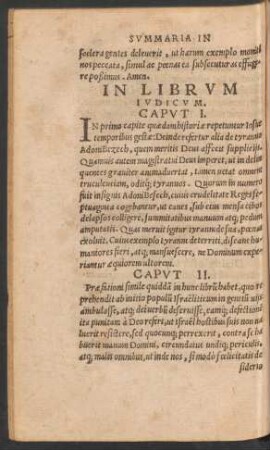 SVMMARIA IN
scelera gentes deleuerit, ut harum exemplo moniti
nos peccata, simul ac poenas ea subsecuturas effuge
re possimus. Amen.
IN LIBRVM
IVDICVM.
CAPVT I.
IN primo capite quædam historiæ repetuntur Iosuæ
temporibus gestæ. Deinde refertur alia de tyranno
Adonibezech, quem meritis Deus affecit supplicijs.
Quamuis autem magistratui Deus imperet, ut in delin
quentes grauiter animaduertat, tamen uetat omnem
truculentiam, oditq; tyrannos. Quorum in numero
fuit insignis Adonibesech, cuius crudelitate Reges se
ptuaginta cogebantur, ut canes, sub eius mensa cibos
delapsos colligere, summitatibus manuum atq; pedum
amputatis. Quas meruit igitur tyrannide sua, poenas
exoluit. Cuius exemplo tyranni deterriti, discant hu
maniores fieri, atq; mansuescere, ne Dominum experi
riantur æquiorem ultorem.
CAPVT II.
Præfationi simile quiddã in hunc librũ habet, quo re
prehendit ab initio populũ Israëliticum in genere uiuẽ
ambulasse, atq; dei uerbũ deseruisse, eamq; defectionẽ
ita punitam à Deo refert, ut Israël hostibus suis non ua
luerit resistere, sed quocunq; perrexerit, contra se ha
buerit manum Domini, circundatus undiq; periculis,
atq; malis omnibus, ut inde nos, si modò felicitatis de
siderio